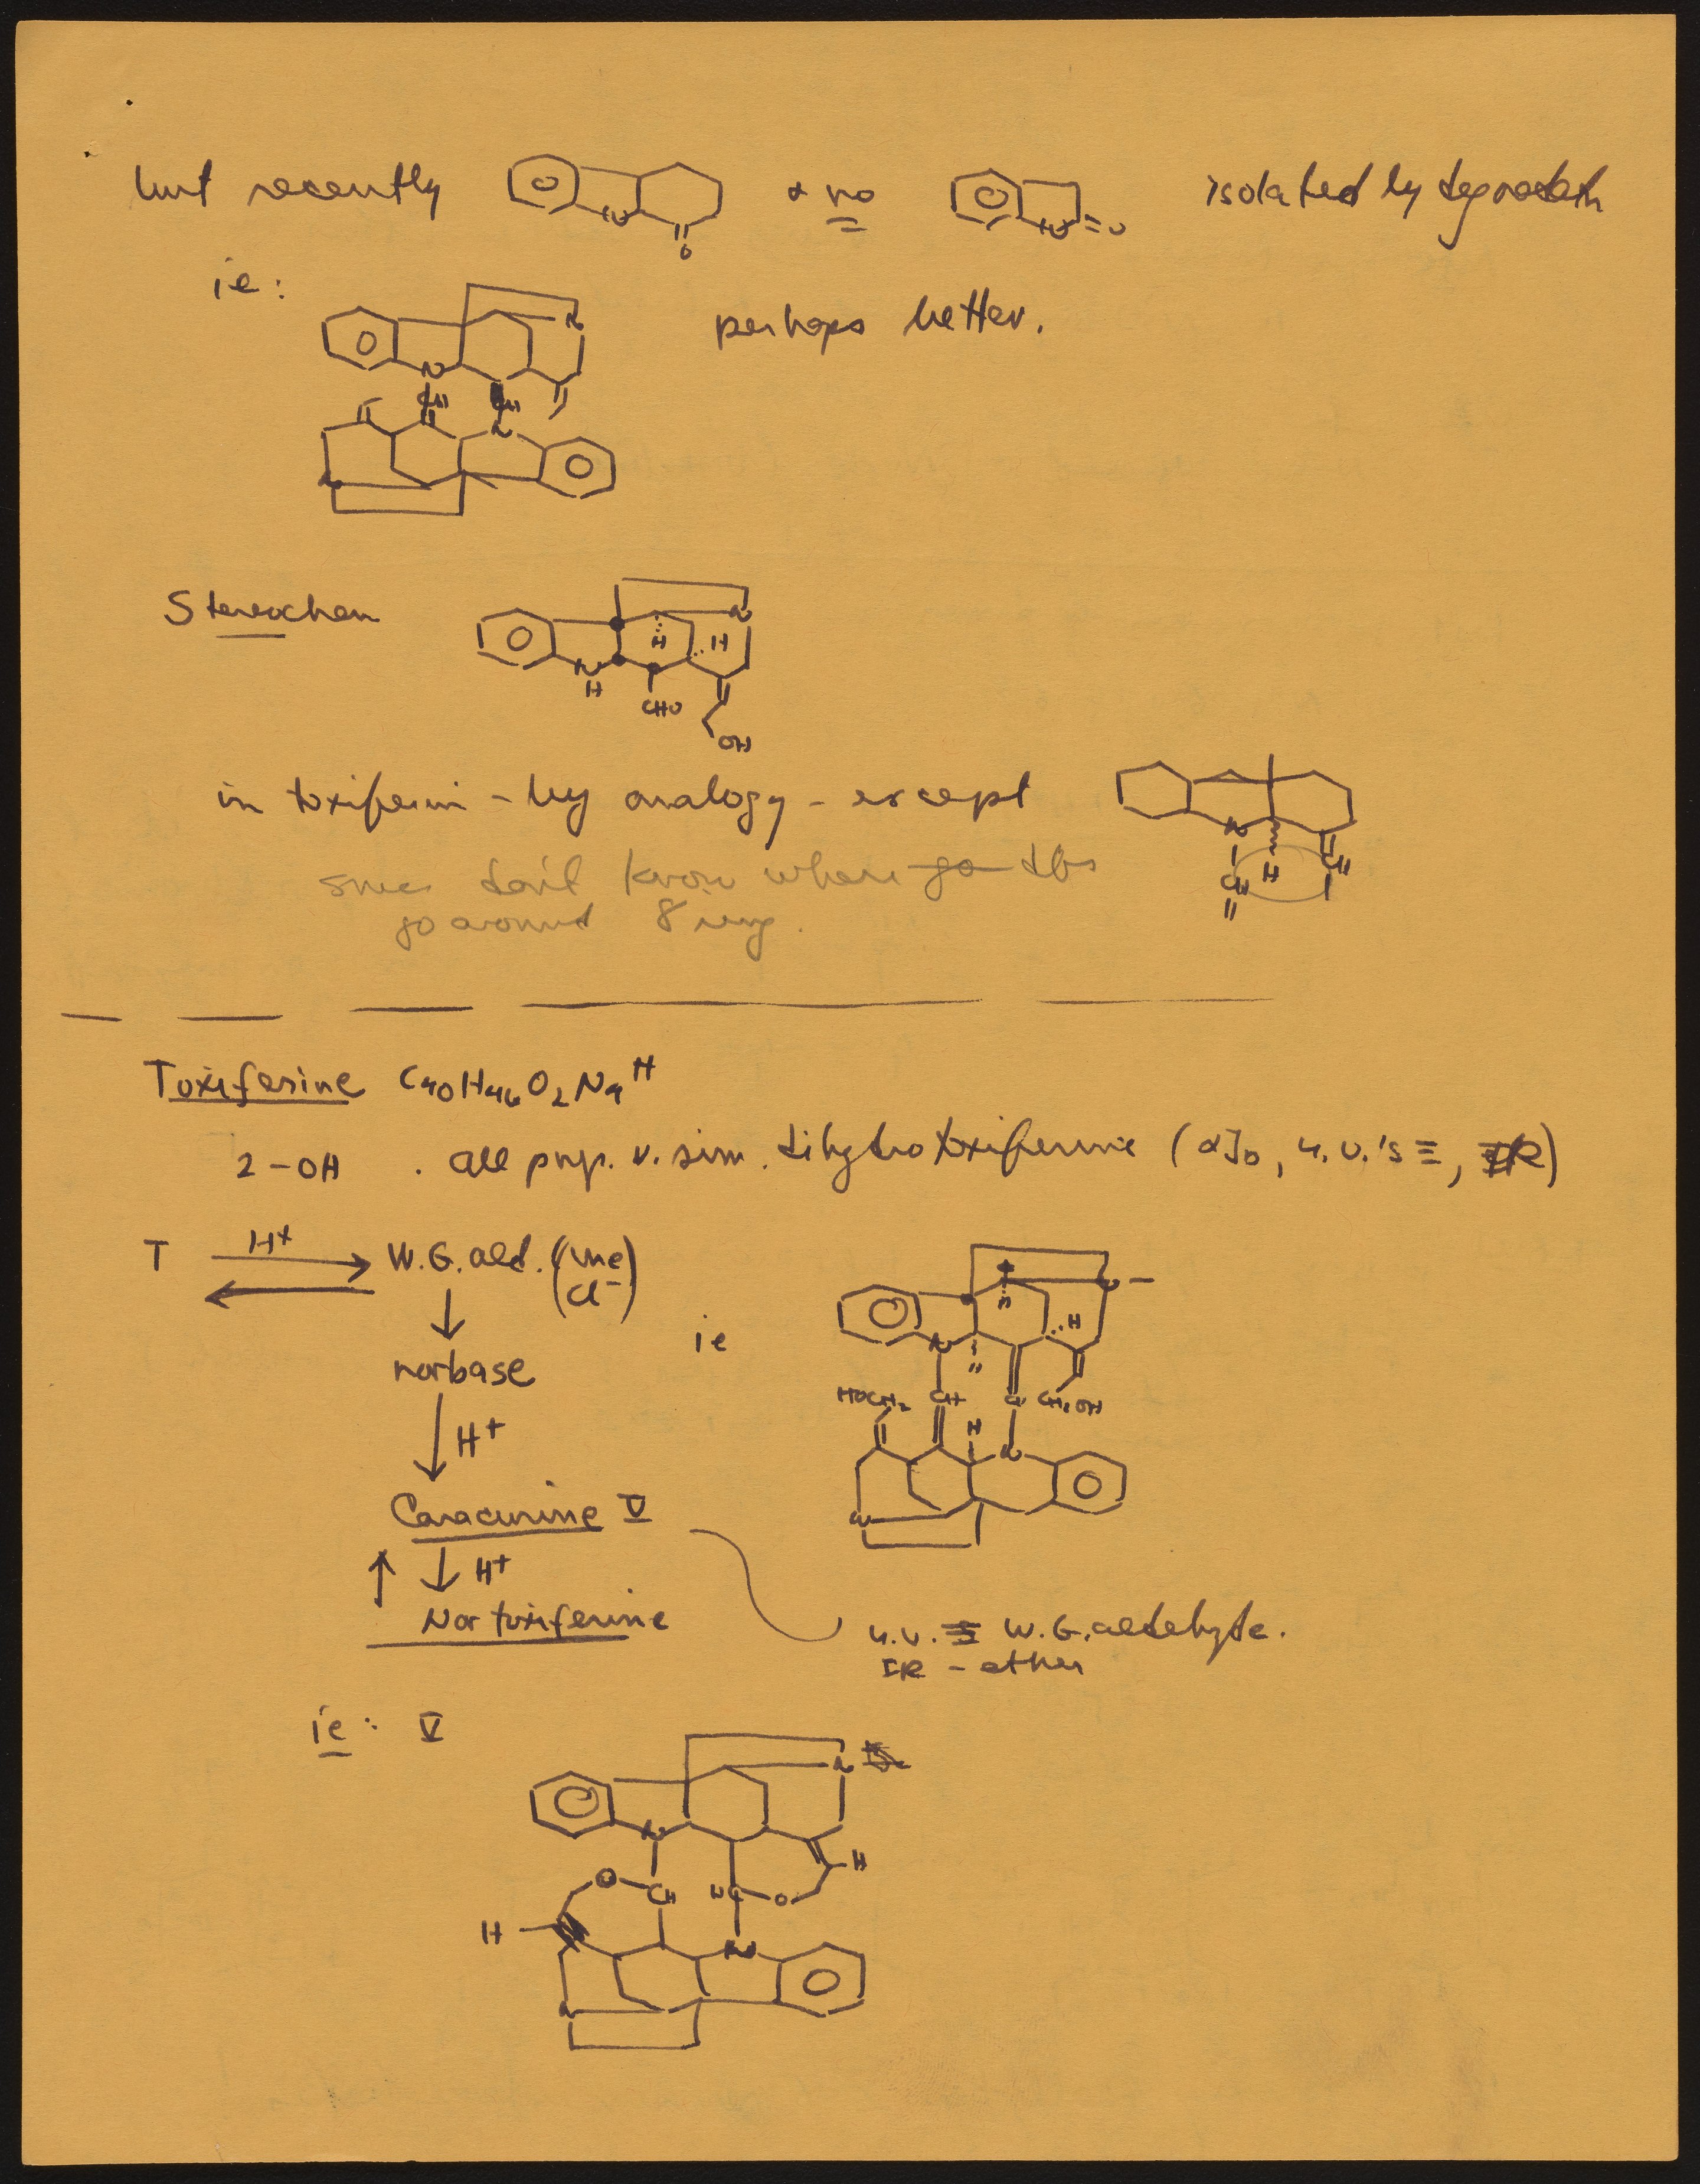 but recently + no isolated by degradatn
N
O
N =O
ie:
perhaps better.
N
N
CH CH
N
N
Stereochem
N
H H
N
H
CHO
OH
in toxiferin - by analogy - except
N
CH H CH
since don't know where go dbs
go around 8 ring.
Toxiferine C40H46O2N4++
2-OH . all prop. v. sim. dihydrotoxiferine (α]D, u.v.'s ≡, IR)
T H+ W.G. ald. (me Cl-)
norbase
ie
N
H
H
N
H+
HOCH2 CH CH CH2OH
H
N
N
Caracurine V
H+
Nor toxiferine
u.v. ≡ W.G. aldehyde.
IR - ether
ie: V
N
N
H
O CH HC O
H
N
N